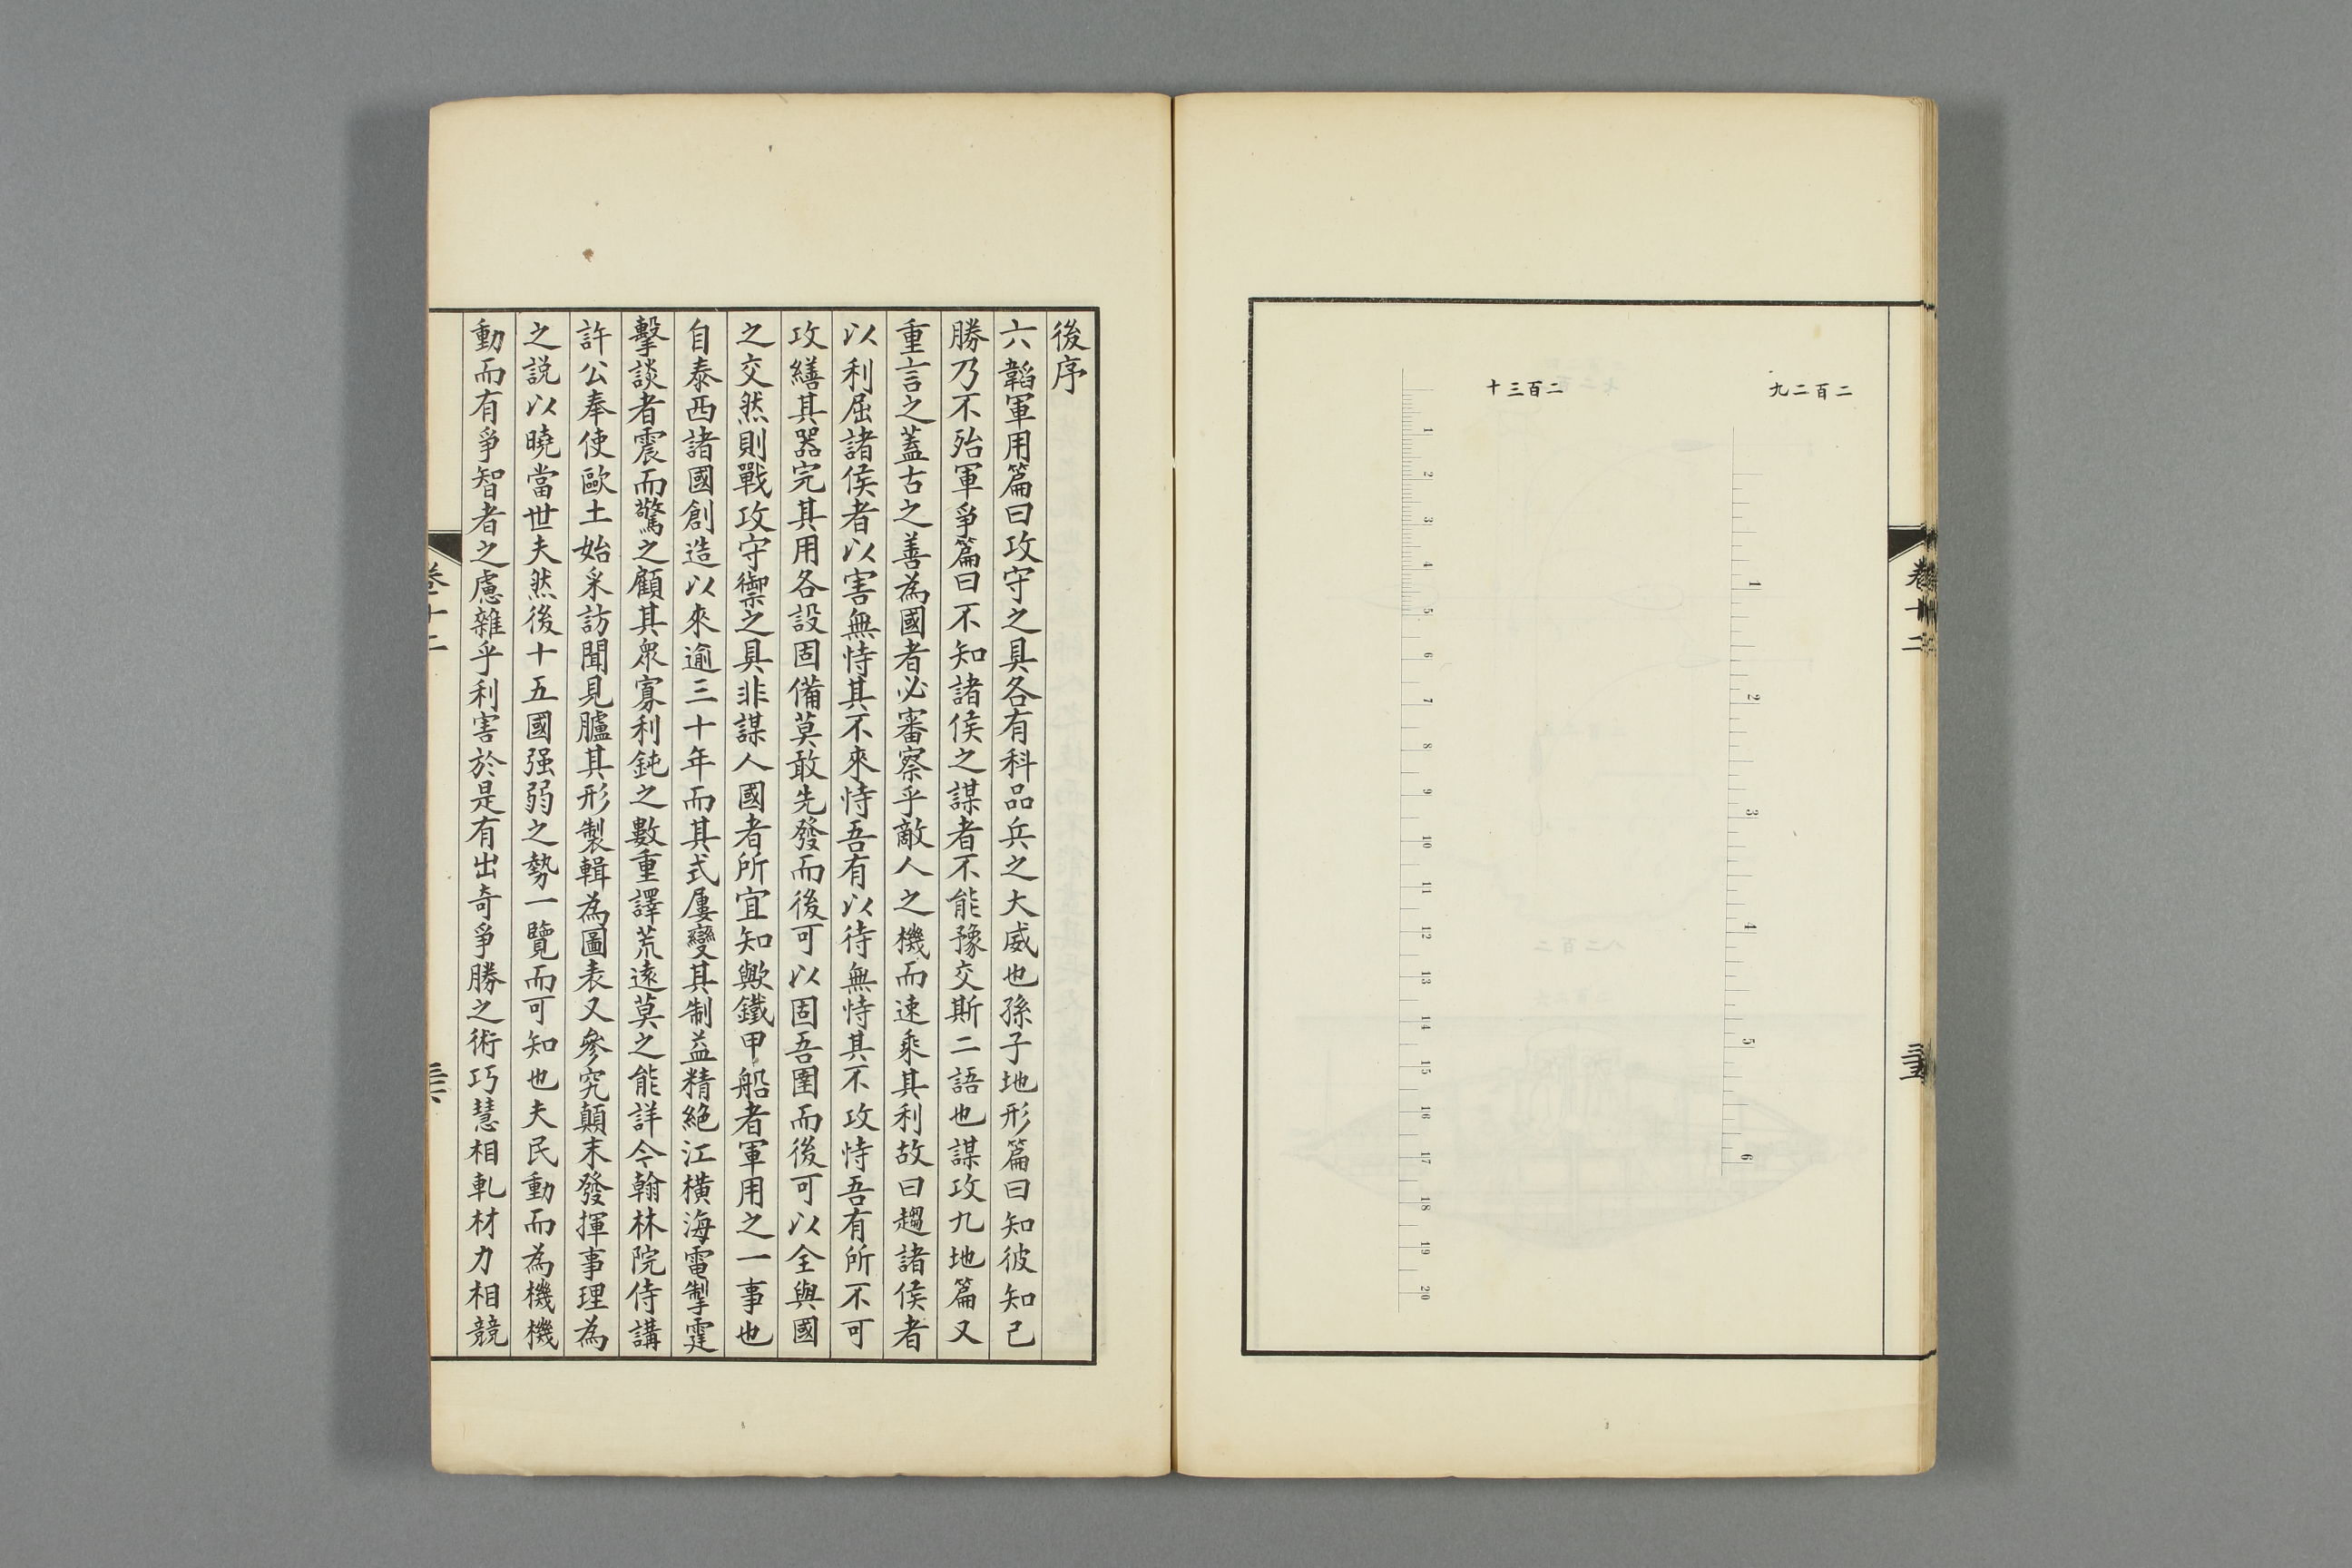 卷十二
三十五
二百二九
1
2
3
4
5
6
二百三十
1
2
3
4
5
6
7
8
9
10
11
12
13
14
15
16
17
18
19
20
後序
六韜軍用篇曰攻守之具各有科品兵之大威也孫子地形篇曰知彼知己
勝乃不殆軍爭篇曰不知諸侯之謀者不能豫交斯二語也謀攻九地篇又
重言之蓋古之善為國者必審察乎敵人之機而速乘其利故曰趨諸侯者
以利屈諸侯者以害無恃其不來恃吾有以待無恃其不攻恃吾有所不可
攻繕其器完其用各設固備莫敢先發而後可以固吾圉而後可以全與國
之交然則戰攻守禦之具非謀人國者所宜知歟鐵甲船者軍用之一事也
自泰西諸國創造以來逾三十年而其式屢變其制益精絕江橫海電掣霆
擊談者震而驚之顧其衆寡利鈍之數重譯荒遠莫之能詳今翰林院侍講
許公奉使歐土始采訪聞見臚其形製輯為圖表又參究顛末發揮事理為
之説以曉當世夫然後十五國强弱之勢一覽而可知也夫民動而為機機
動而有爭智者之慮雜乎利害於是有出奇爭勝之術巧慧相軋材力相競
卷十二
三十六